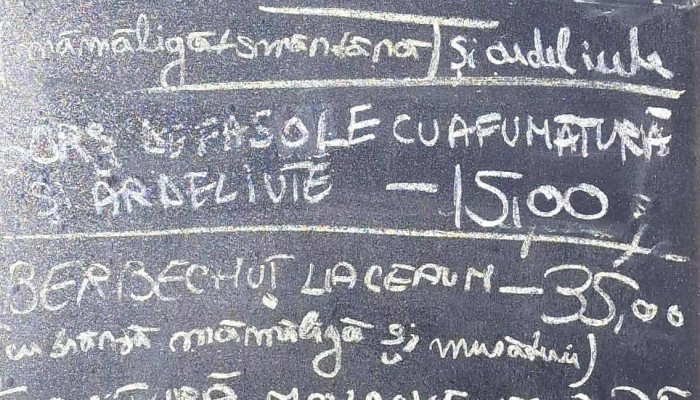 mămăligă+smântână) și ardei iute
BORȘ DE FASOLE CU AFUMĂTURĂ
ȘI ARDEI IUTE — 15,00
BERBECUȚ LA CEAUN — 35,00
cu brânză mămăligă și murături)